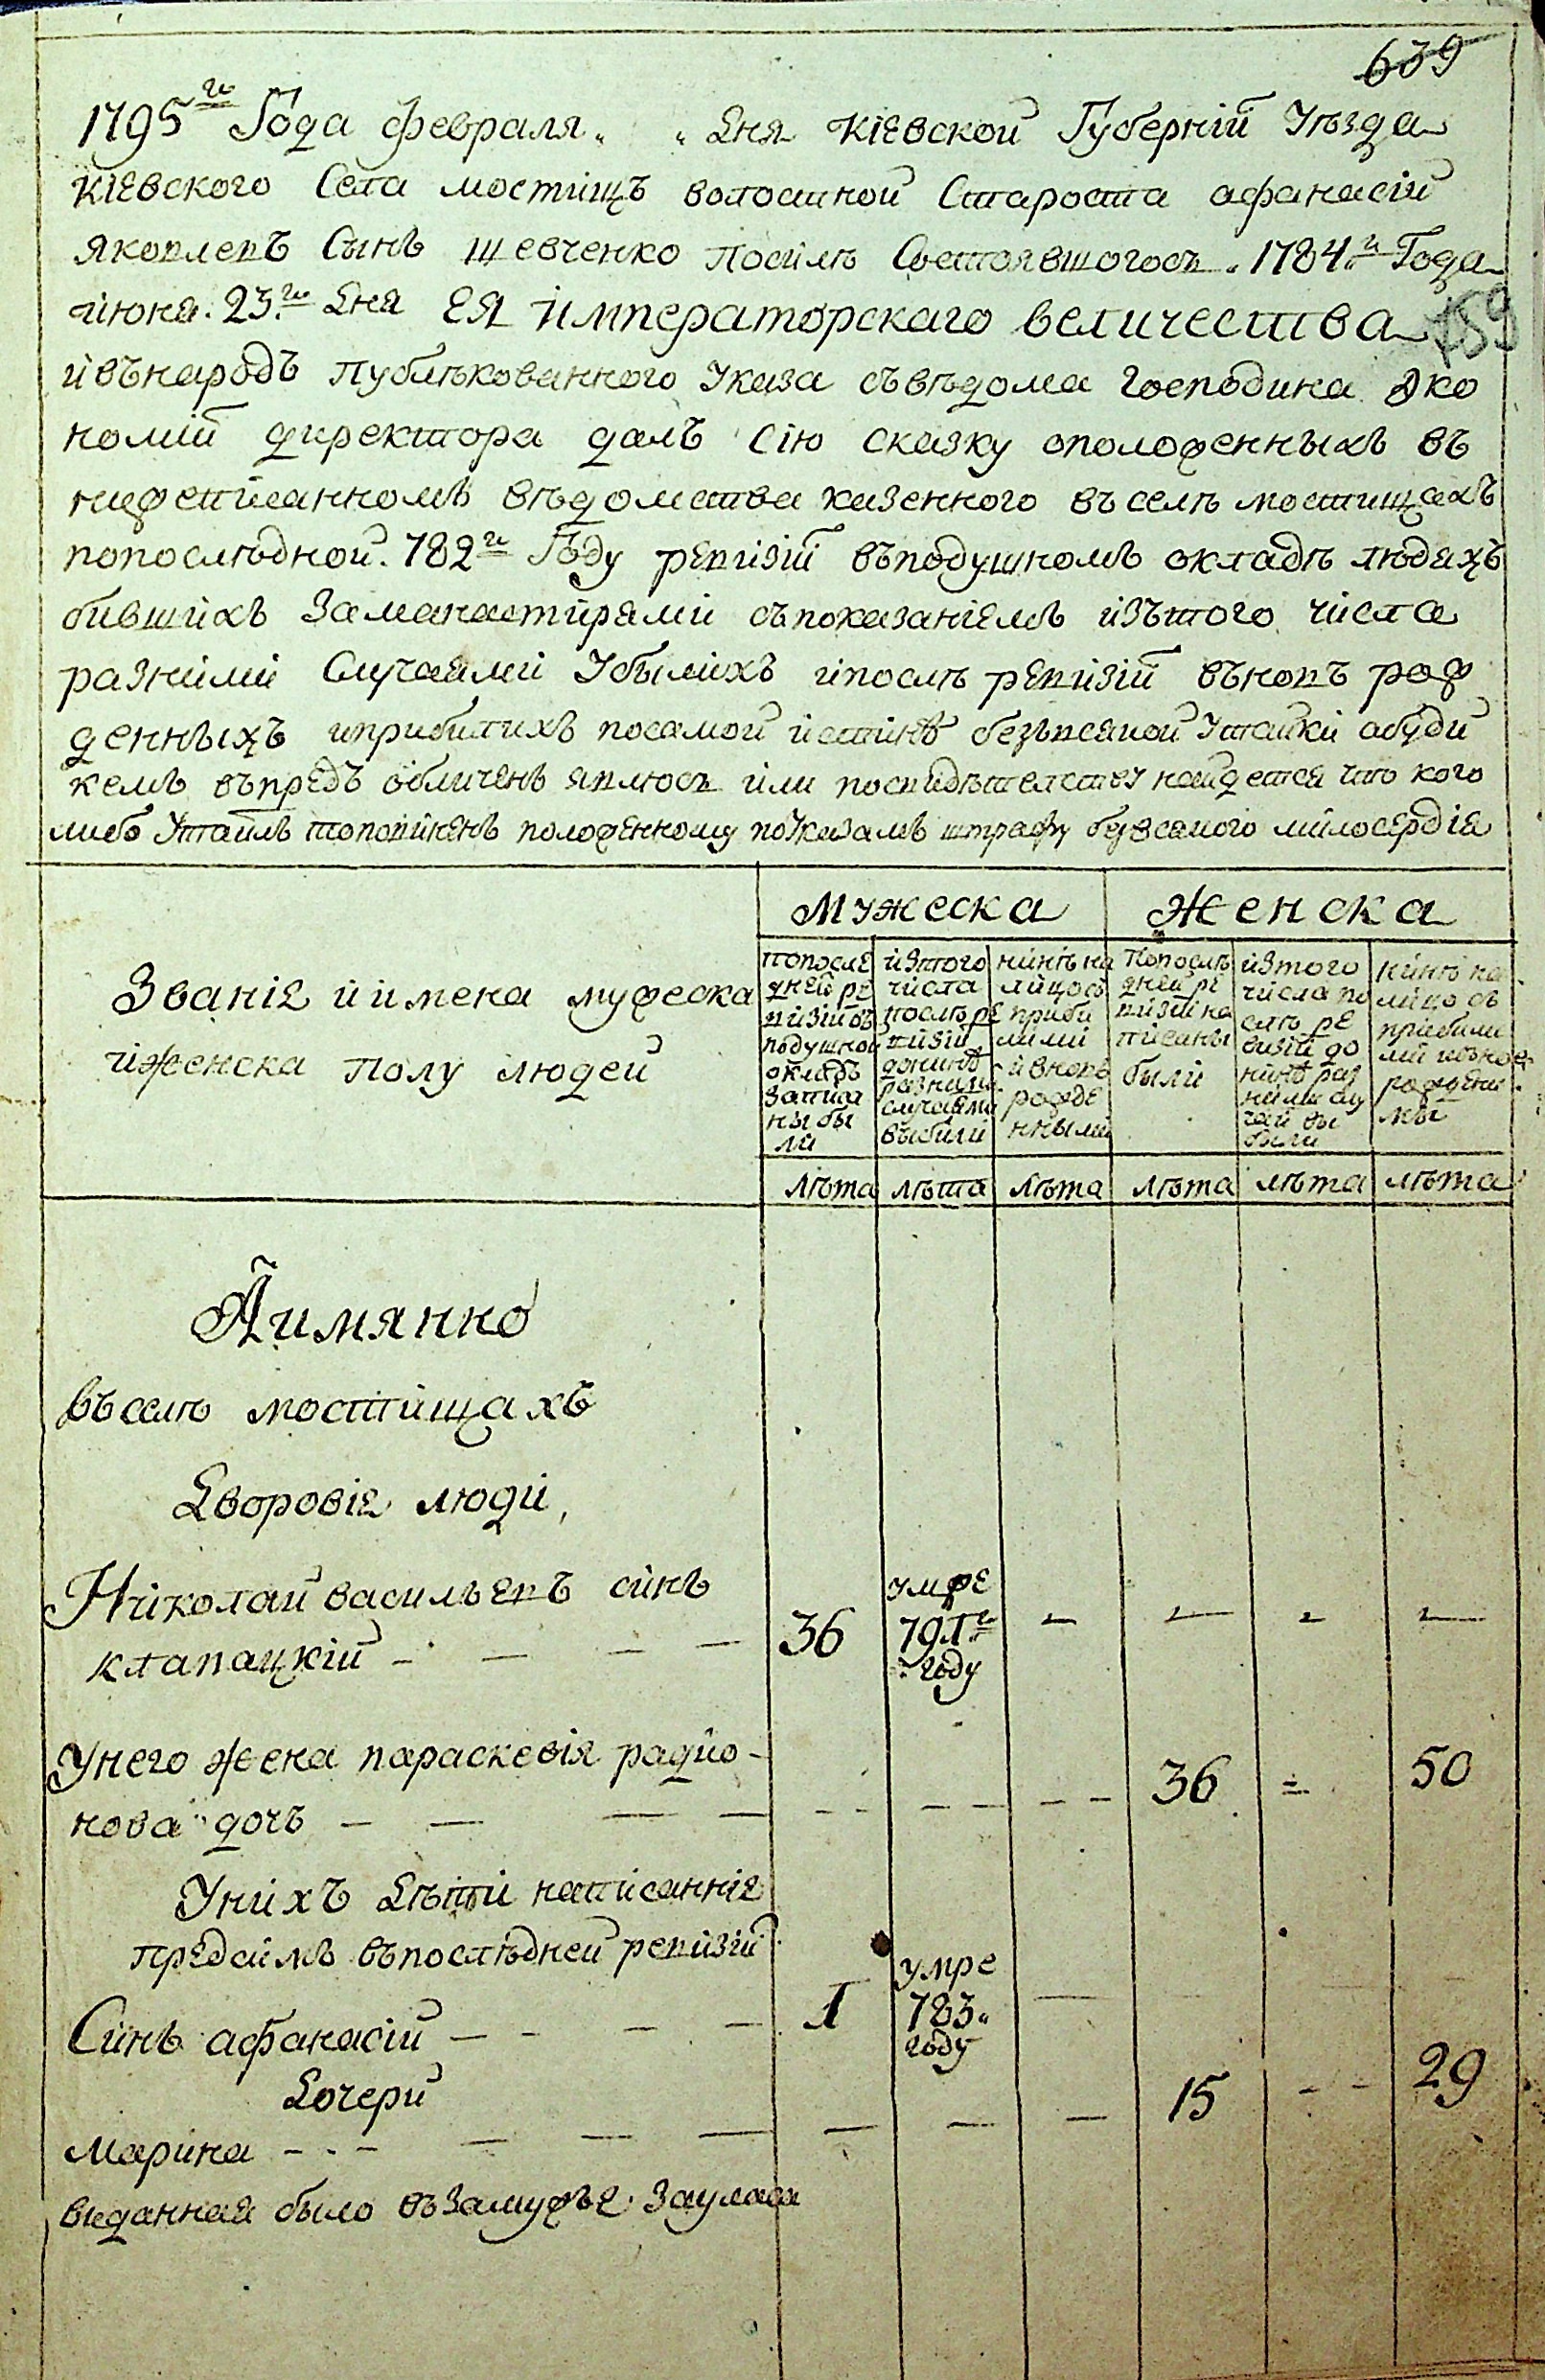 639
1795го Года февраля „ „ дня Кіевской Губерніи Уезда
Кіевского Села мостищъ волостной Староста афанасій
яковлевъ Сынъ шевченко посиле Состоявшогось 1784го Года
июня 23го дня ЕЯ императорскаго величества
159
и въ народъ публѣкованного Указа съ вѣдома Господина Эко
номіи директора далъ Сію сказку о положенныхъ въ
нижеписанномъ вѣдомства казенного въ селѣ мостищахъ
по послѣдной 782го Году ревизіи въ подушномъ окладѣ людехъ
бившихъ за манастирями съ показаніемъ изъ того числа
разними Случаями Убылихъ и послѣ ревизіи вновъ рож
денныхъ и прибилихъ по самой истинѣ безъ всякой Утайки а буди
кемъ въпредъ обличенъ явлюсь или по свидѣтелству найдется что кого
либо Утаилъ то повиненъ положенному по Указамъ штрафу без всякого милосердія
Званіе и имена мужеска
и женска полу людей
мужеска
Женска
по после
дней ре
визіи въ
подушной
окладъ
записа
ны бы
ли
из того
числа
послѣ ре
визіи
до нинѣ
разними
случаями
выбили
нинѣ на
лицо съ
приби
лими
и вновь
рожде
нными
По послѣ
дней ре
визіи на
писаны
были
из того
числа по
слѣ ре
визіи до
нинѣ раз
ними слу
чаи вы
были
нинѣ на
лицо съ
прибили
ми и вно
рожденн
мы
лѣта лѣта лѣта лѣта лѣта лѣта
А имянно
въ селѣ мостищахъ
дворовіе люди,
Николай васильевъ синъ
клапацкій 36 умре 791го году
У него жена параскевія радио-
нова дочъ 36 50
У нихъ дѣти написанніе
предсимъ въ послѣдней ревизіи
Синъ афанасій 1 умре 783 году
дочери
марина 15 29
виданная было въ замужъе за уласа